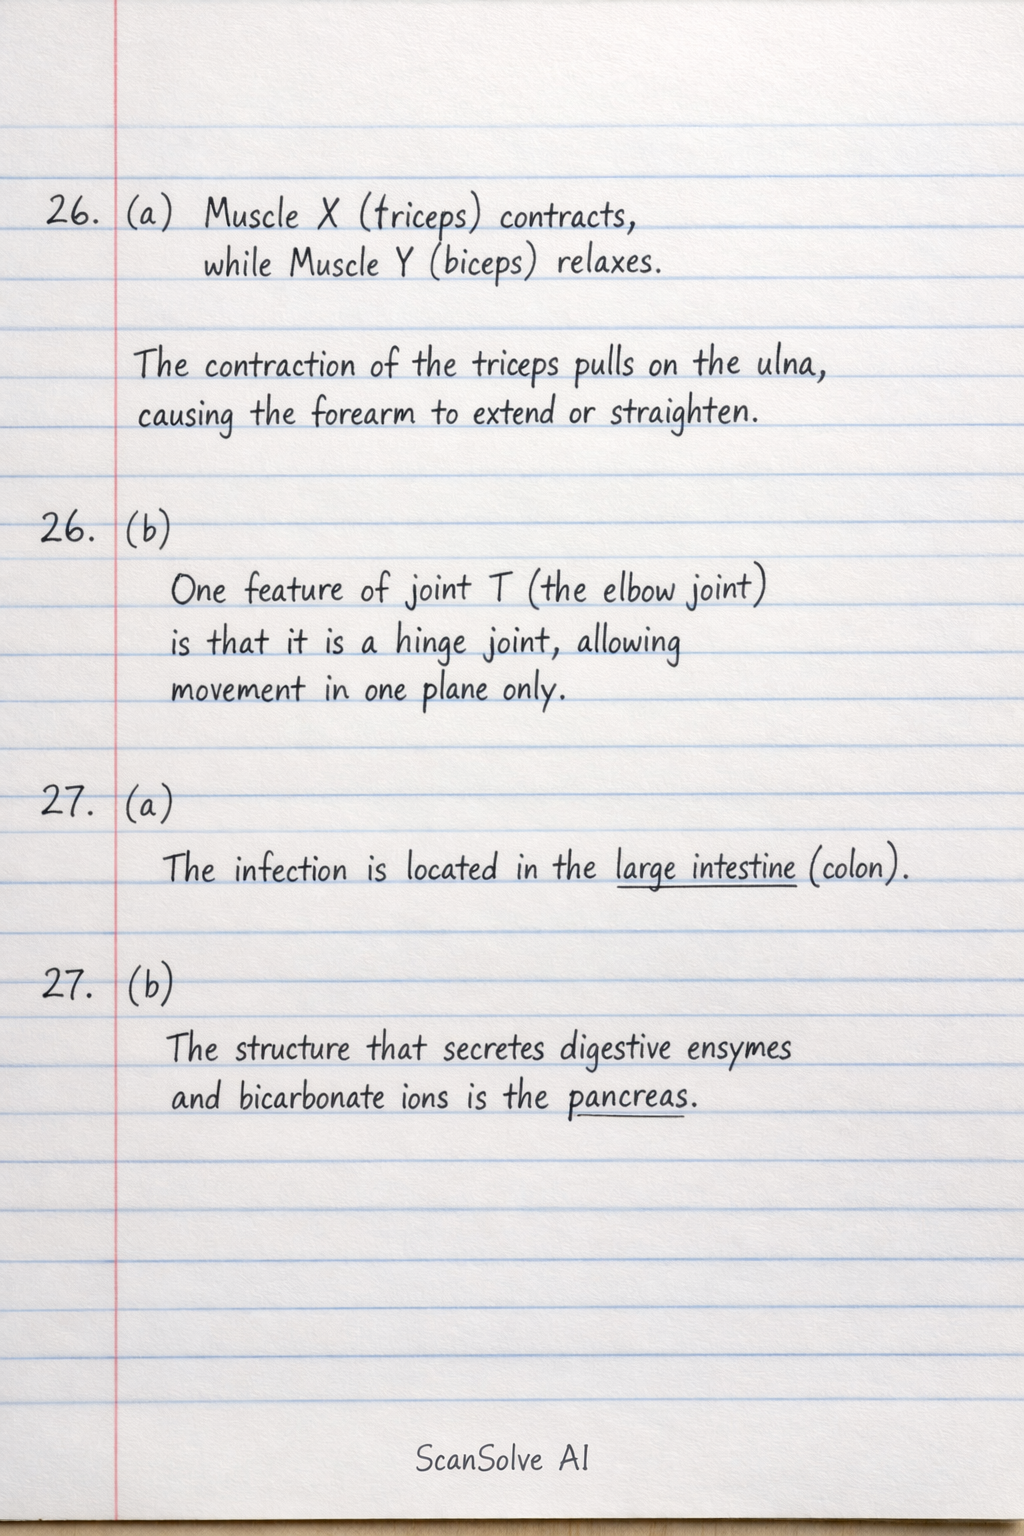 26. (a) Muscle X (triceps) contracts,
while Muscle Y (biceps) relaxes.
The contraction of the triceps pulls on the ulna,
causing the forearm to extend or straighten.
26. (b)
One feature of joint T (the elbow joint)
is that it is a hinge joint, allowing
movement in one plane only.
27. (a)
The infection is located in the large intestine (colon).
27. (b)
The structure that secretes digestive ensymes
and bicarbonate ions is the pancreas.
ScanSolve AI